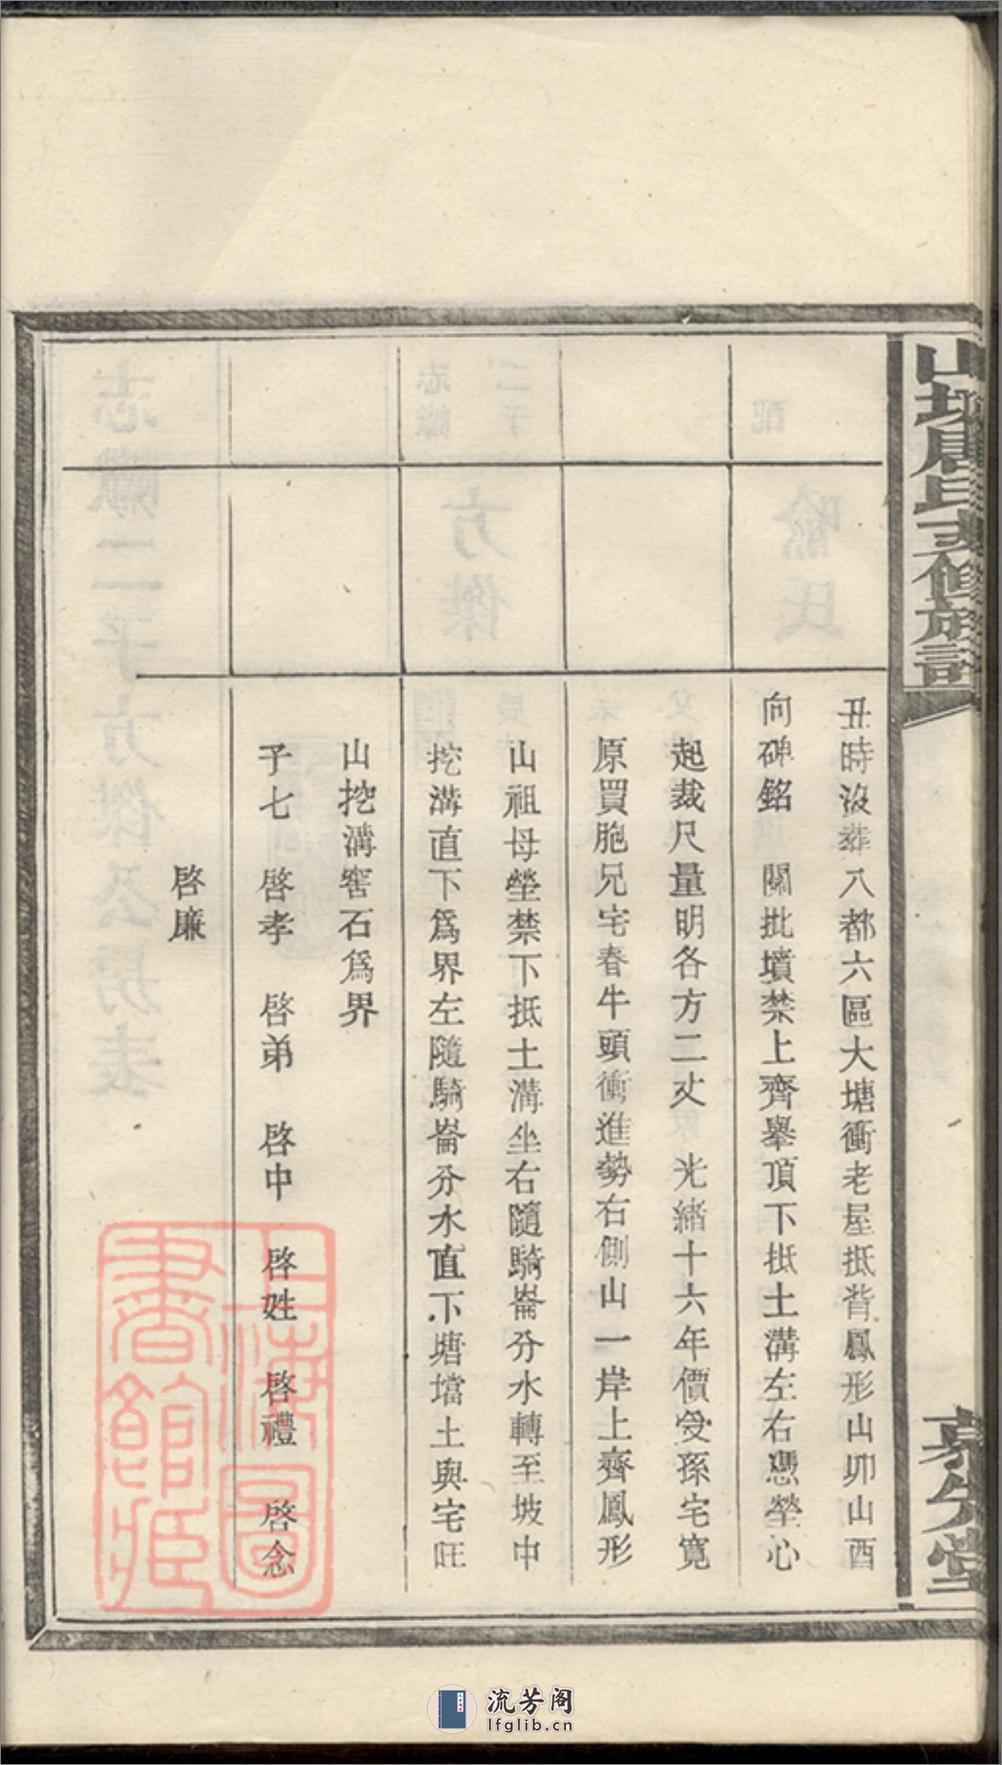 丑時沒葬八都六區大塘衝老屋抵背鳳形山卯山酉
向碑銘　關批墳禁上齊舉頂下抵土溝左右憑塋心
起裁尺量明各方二丈　光緒十六年價受孫宅寬
原買胞兄宅春牛頭衝進勢右側山一岸上齊鳳形
山祖母塋禁下抵土溝坐右隨騎崙分水轉至坡中
挖溝直下爲界左隨騎崙分水直下塘壋土與宅旺
山挖溝窖石爲界
子七　啓孝　啓弟　啓中　啓姓　啓禮　啓念
啓廉
上海圖書館藏
流芳阁
lfglib.cn